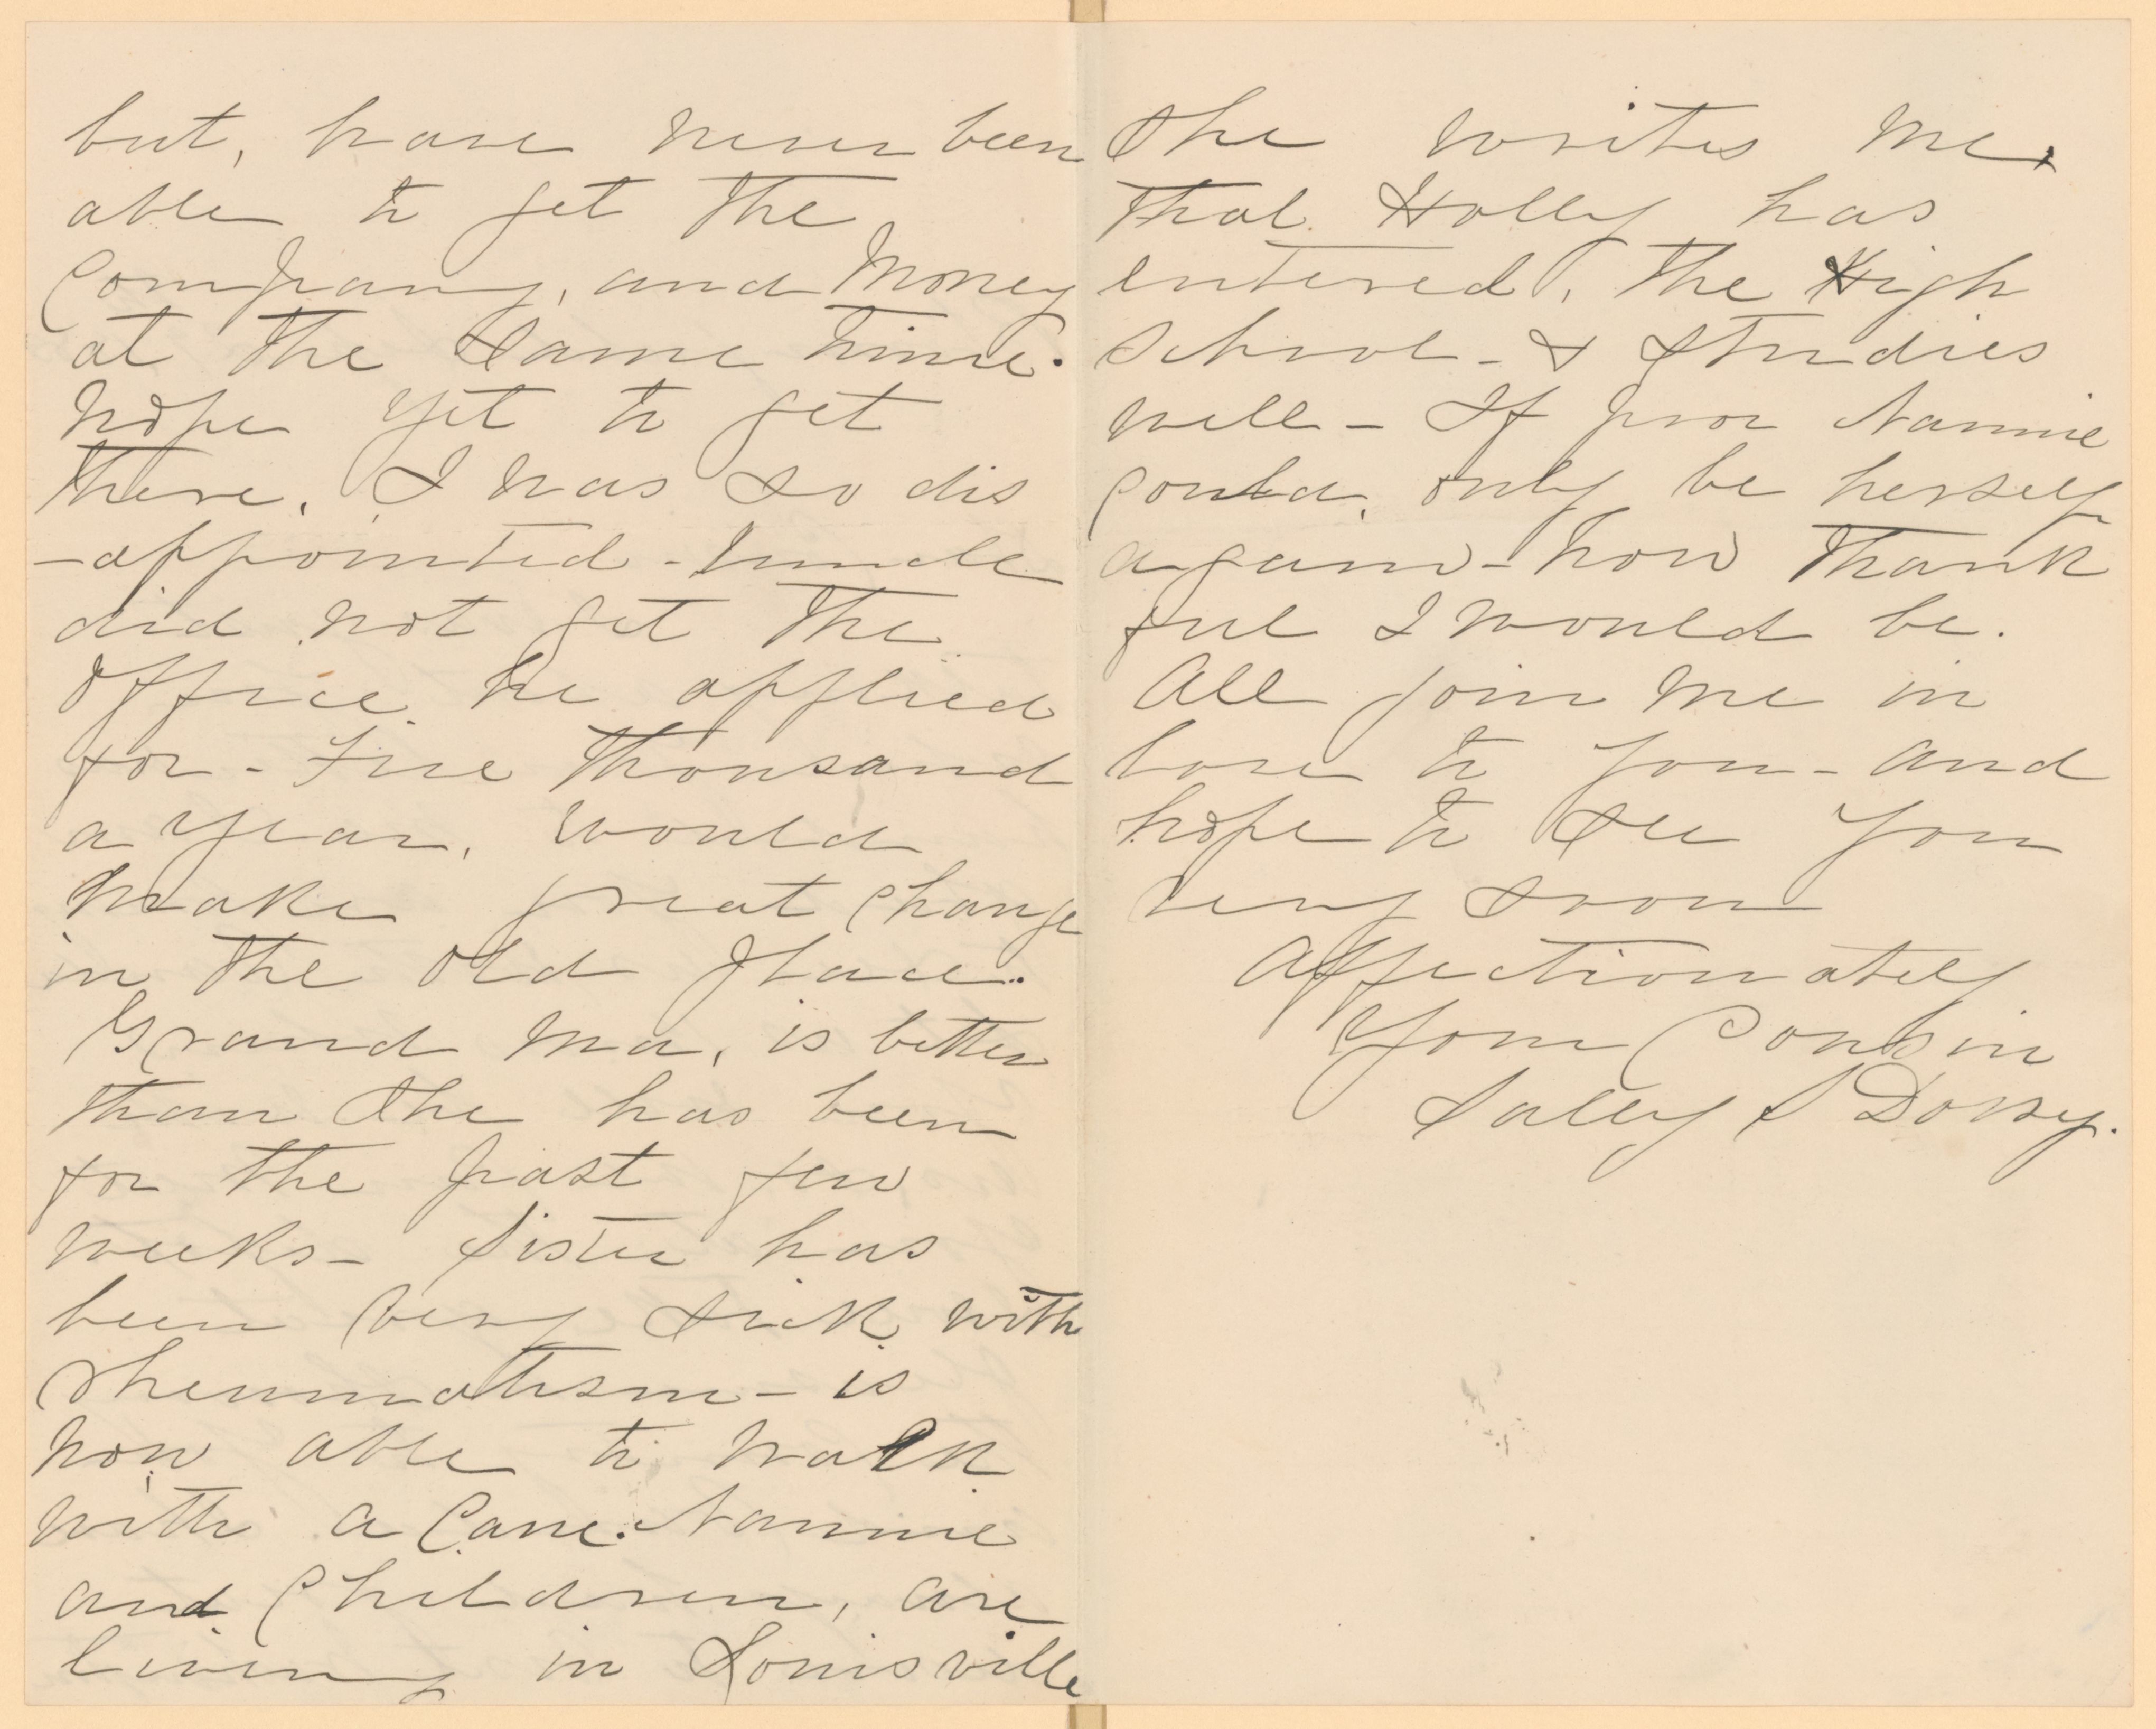 but, have never been
able to get the
Company, and Money
at the same time.
hope yet to get
there. I was so dis
-appointed - Uncle
did not get the
Office he applied
for - Five thousand
a year, would
make great change
in the old place.
Grand Ma, is better
than she has been
for the past few
weeks - Sister has
been very sick with
rheumatism - is
now able to walk
with a Cane. Nannie
and Children, are
living in Louisville
She writes me,
that Holly has
entered, the High
School - & studies
well - If poor Nannie
could, only be herself
again - how thank
ful I would be.
All join me in
love to you - and
hope to see you
very soon
Affectionately
Your Cousin
Sally S Dorsey.